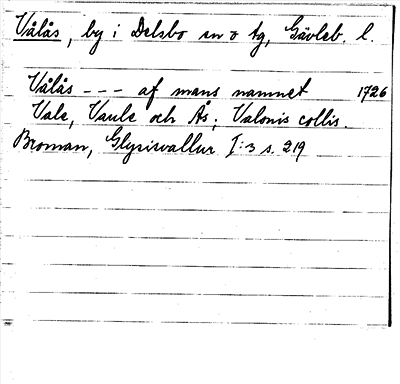 Vålås, by i Delsbo sn o tg, Gävleb. l.
Vålås --- af mans namnet 1726
Vale, Vaule och Ås; Valonis collis.
Broman, Glysisvallur I:3 s. 219